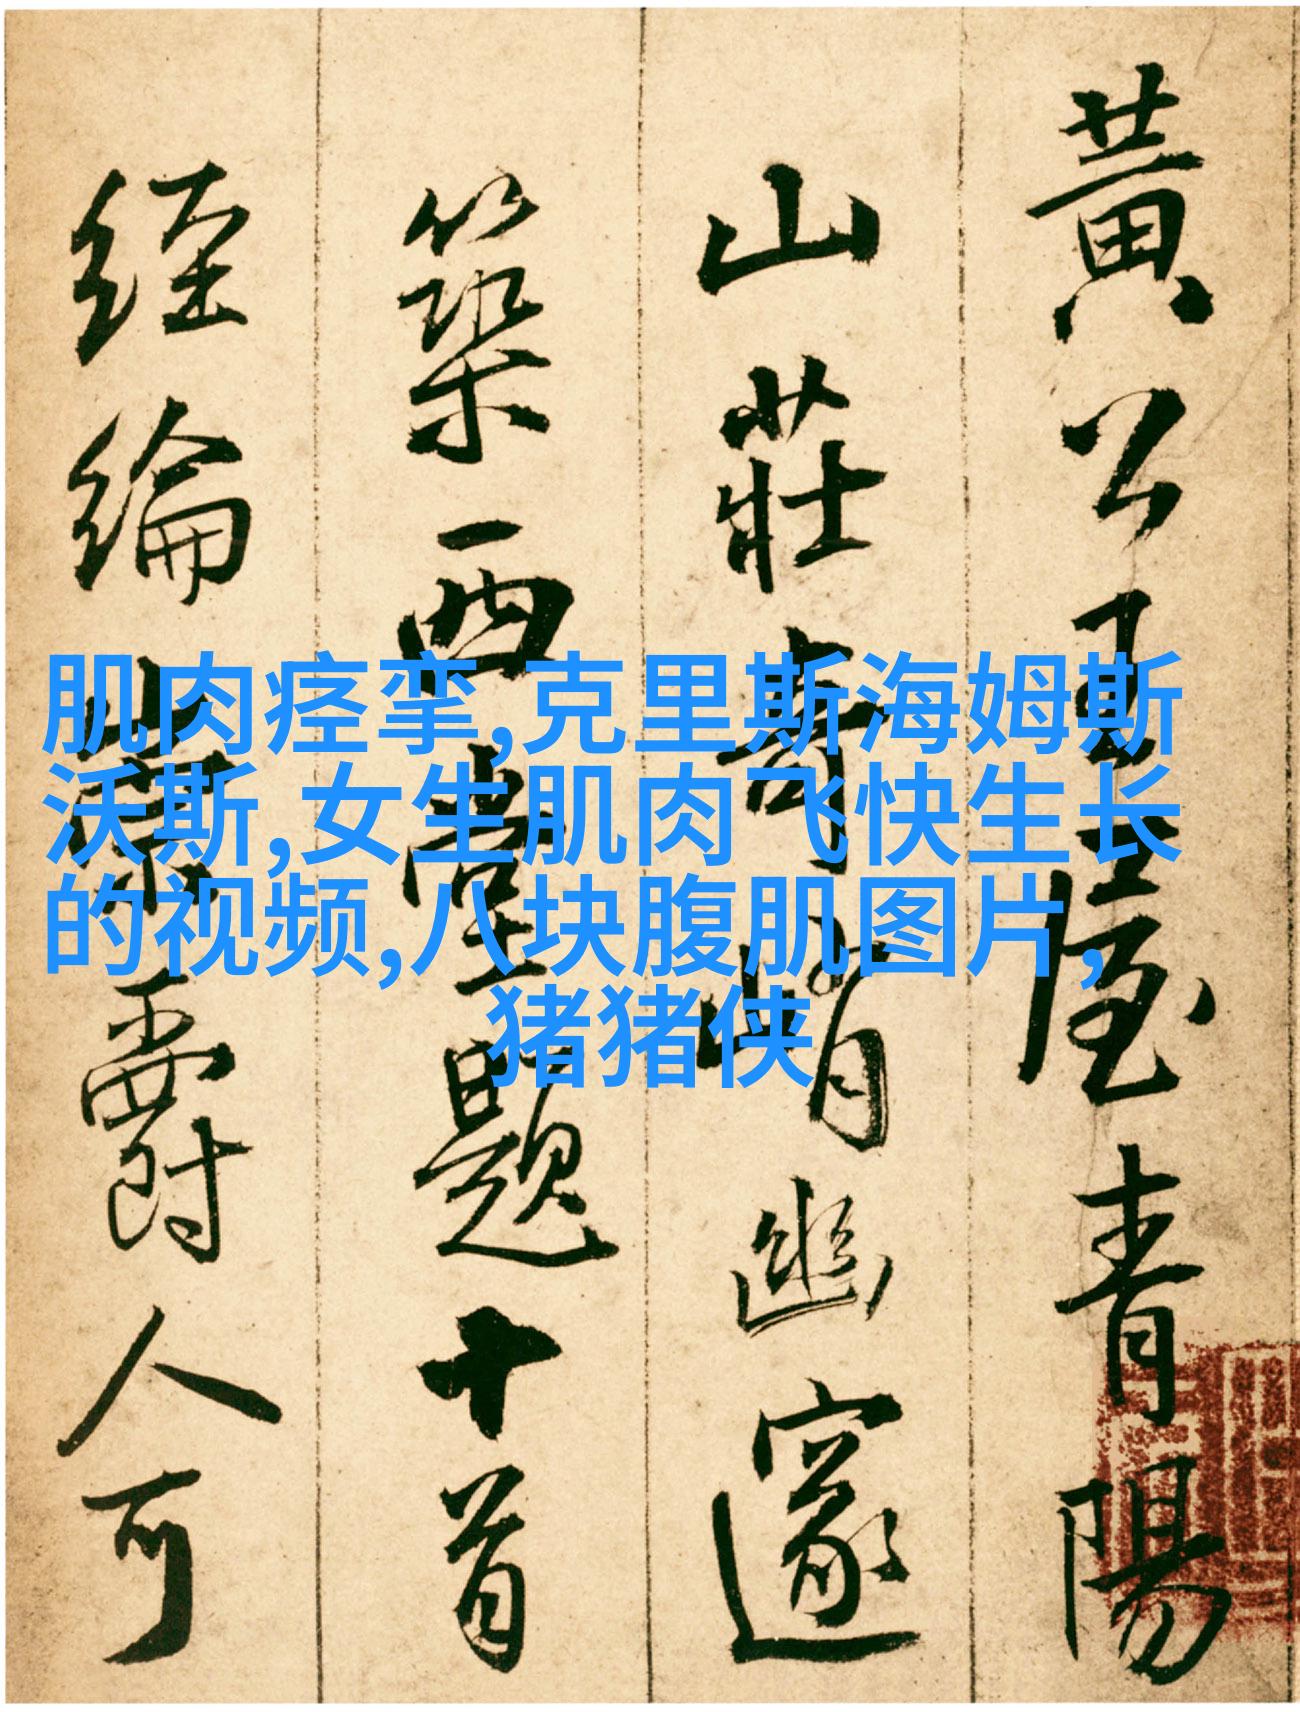 黃公屋青陽
山莊奇峭幽邃
築西堂題十首
經綸爵人可
肌肉痉挛,克里斯海姆斯
沃斯,女生肌肉飞快生长
的视频,八块腹肌图片,
猪猪侠